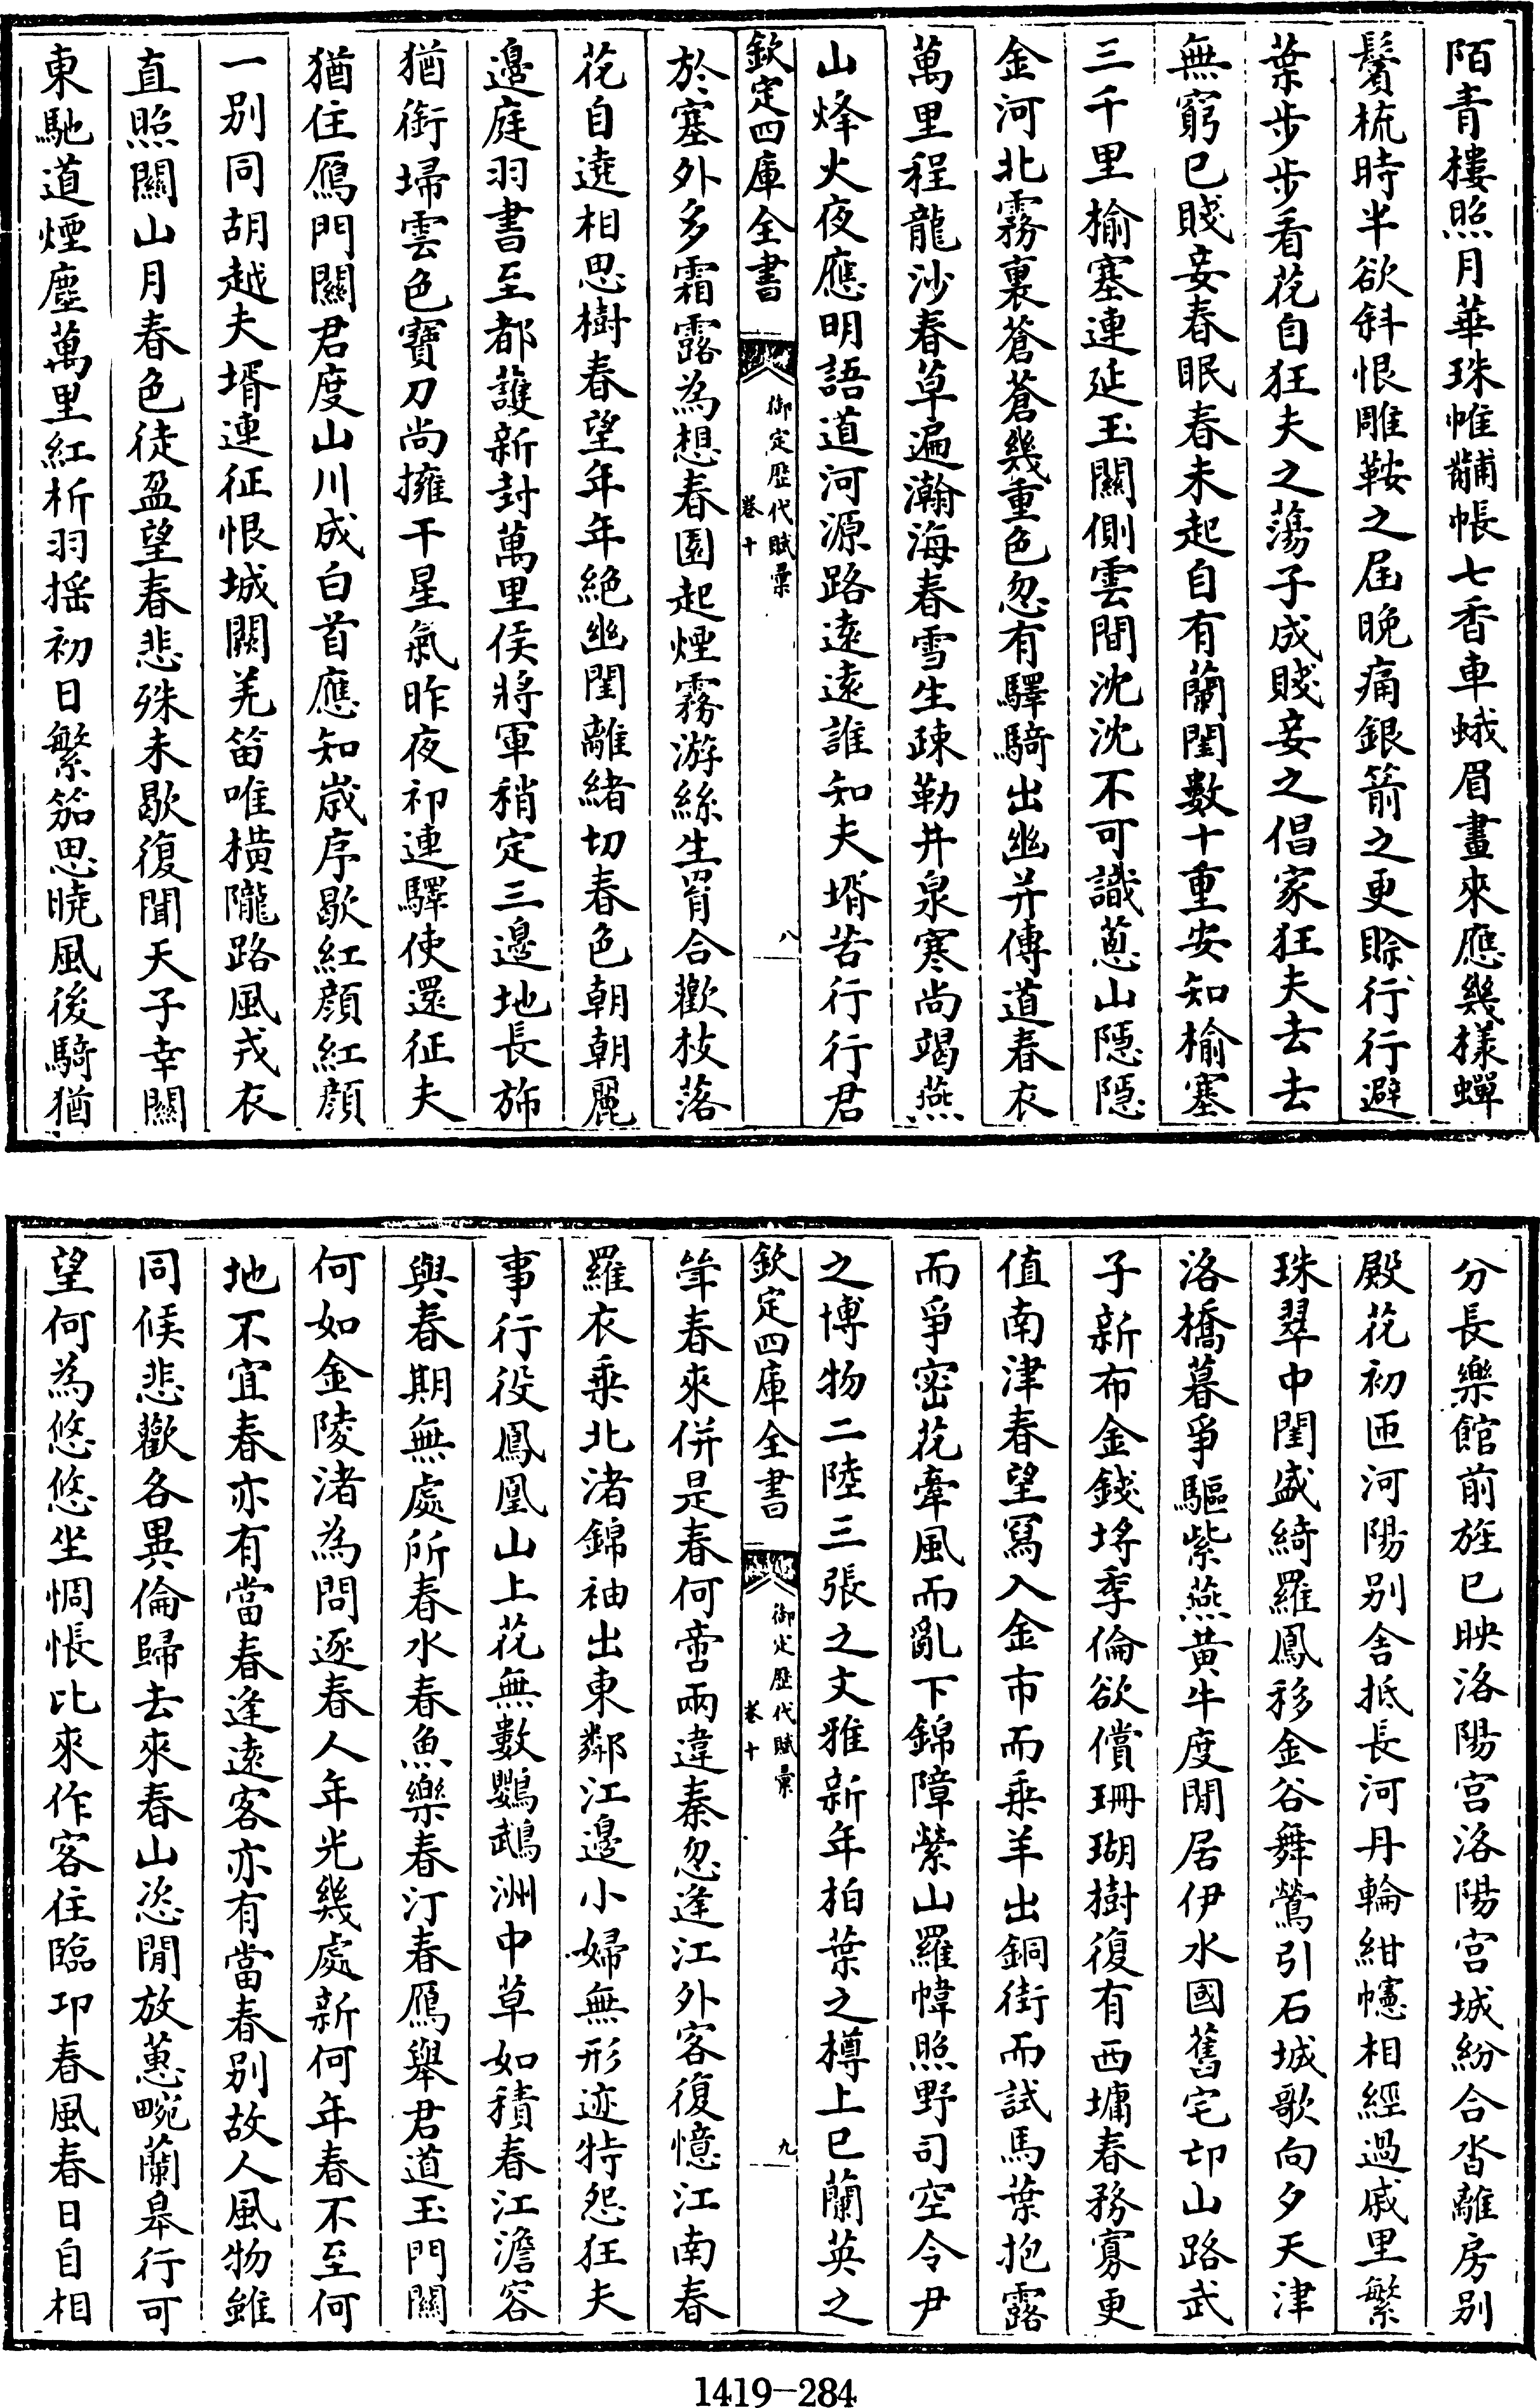 陌青樓照月華珠帷黼帳七香車蛾眉畫來應幾樣蟬
鬢梳時半欲斜恨雕鞍之屆晚痛銀箭之更賒行行避
葉步步看花自狂夫之蕩子成賤妾之倡家狂夫去去
無窮已賤妾春眠春未起自有蘭閨數十重安知榆塞
三千里榆塞連延玉關側雲間沈沈不可識蔥山隱隱
金河北霧裏蒼蒼幾重色忽有驛騎出幽并傳道春衣
萬里程龍沙春草遍瀚海春雪生疎勒井泉寒尚竭燕
山烽火夜應明語道河源路遠遠誰知夫壻苦行行君
欽定四庫全書
御定歷代賦彙
卷十
八
於塞外多霜露為想春園起煙霧游絲生罥合歡枝落
花自遶相思樹春望年年絕幽閨離緒切春色朝朝麗
邊庭羽書至都護新封萬里侯將軍稍定三邊地長斾
猶銜埽雲色寶刀尚擁干星氣昨夜祁連驛使還征夫
猶住鴈門關君度山川成白首應知歲序歇紅顔紅顔
一别同胡越夫壻連征恨城闕羌笛唯横隴路風戎衣
直照關山月春色徒盈望春悲殊未歇復聞天子幸關
東馳道煙塵萬里紅析羽揺初日繁笳思曉風後騎猶
分長樂館前旌已映洛陽宫洛陽宫城紛合沓離房别
殿花初匝河陽别舍抵長河丹輪紺幰相經過戚里繁
珠翠中閨盛綺羅鳳移金谷舞鶯引石城歌向夕天津
洛橋暮爭驅紫燕黄牛度閒居伊水國舊宅邙山路武
子新布金錢埒季倫欲償珊瑚樹復有西墉春務寡更
值南津春望寫入金市而乗羊出銅街而試馬葉抱露
而爭密花牽風而亂下錦障縈山羅幃照野司空令尹
之博物二陸三張之文雅新年柏葉之樽上巳蘭英之
欽定四庫全書
御定歷代賦彙
卷十
九
斝春來併是春何啻兩違秦忽逢江外客復憶江南春
羅衣乗北渚錦袖出東鄰江邊小婦無形迹特怨狂夫
事行役鳳凰山上花無數鸚鵡洲中草如積春江澹容
與春期無處所春水春魚樂春汀春鴈舉君道玉門關
何如金陵渚為問逐春人年光幾處新何年春不至何
地不宜春亦有當春逢遠客亦有當春别故人風物雖
同候悲歡各異倫歸去來春山恣閒放蕙畹蘭皋行可
望何為悠悠坐惆悵比來作客住臨卭春風春日自相
1419-284